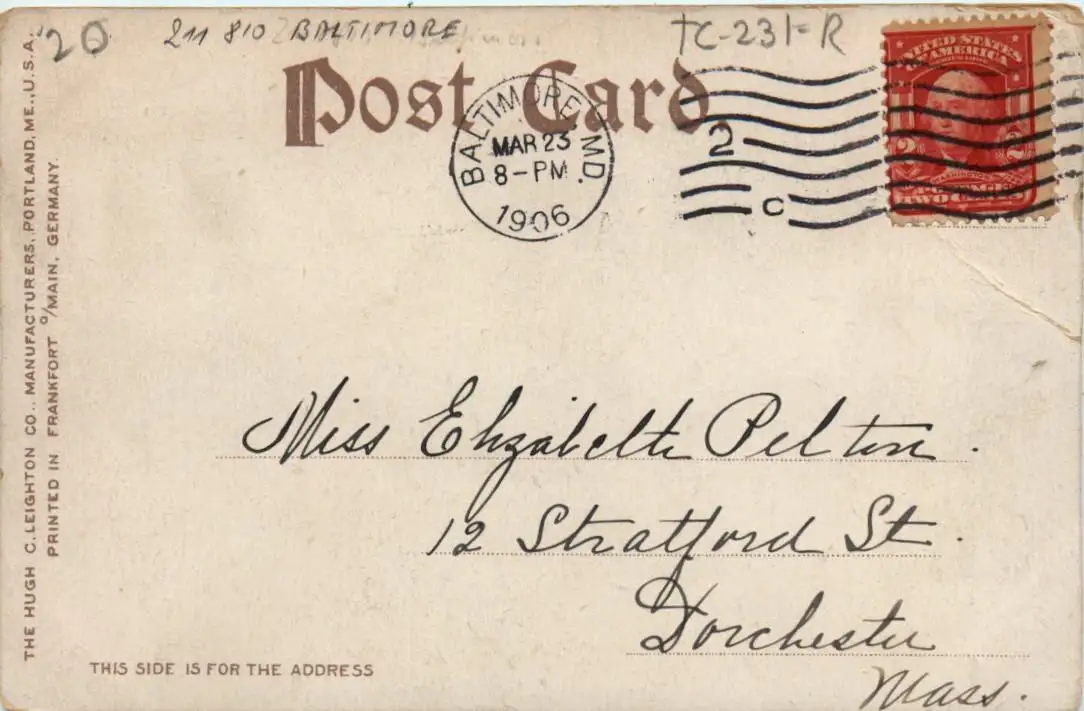 20
211 810 BALTIMORE
TC-231-R
Post Card
BALTIMORE, MD.
MAR 23
8-PM
1906
2
C
UNITED STATES
OF AMERICA
2 2
TWO CENTS
THE HUGH C. LEIGHTON CO., MANUFACTURERS, PORTLAND, ME., U.S.A.
PRINTED IN FRANKFORT o/MAIN, GERMANY.
Miss Elizabeth Pelton.
12 Stratford St.
Dorchester
Mass.
THIS SIDE IS FOR THE ADDRESS